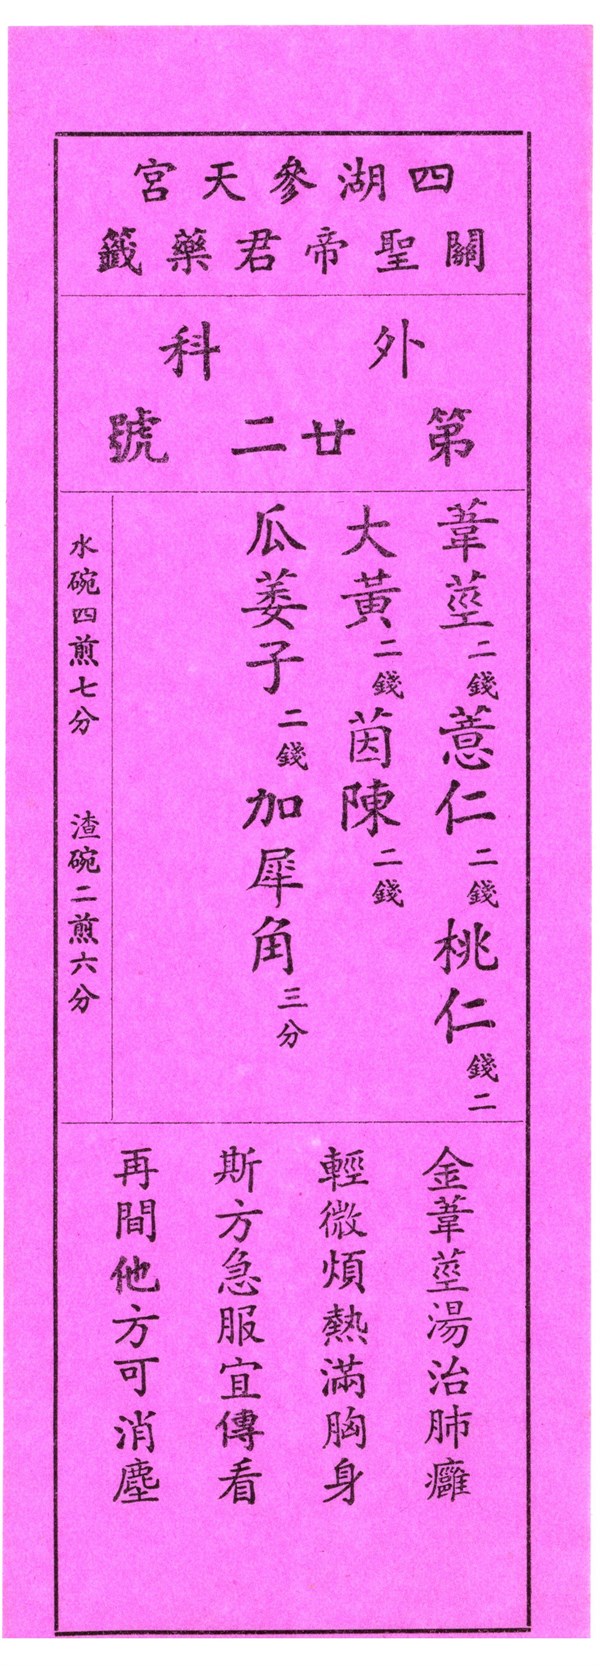 四湖參天宮
關聖帝君藥籤
外科
第廿二號
葦莖二錢薏仁二錢桃仁錢二
大黃二錢茵陳二錢
瓜蒌子二錢加犀角三分
水碗四煎七分 渣碗二煎六分
金葦莖湯治肺癰
輕微煩熱滿胸身
斯方急服宜傳看
再間他方可消塵